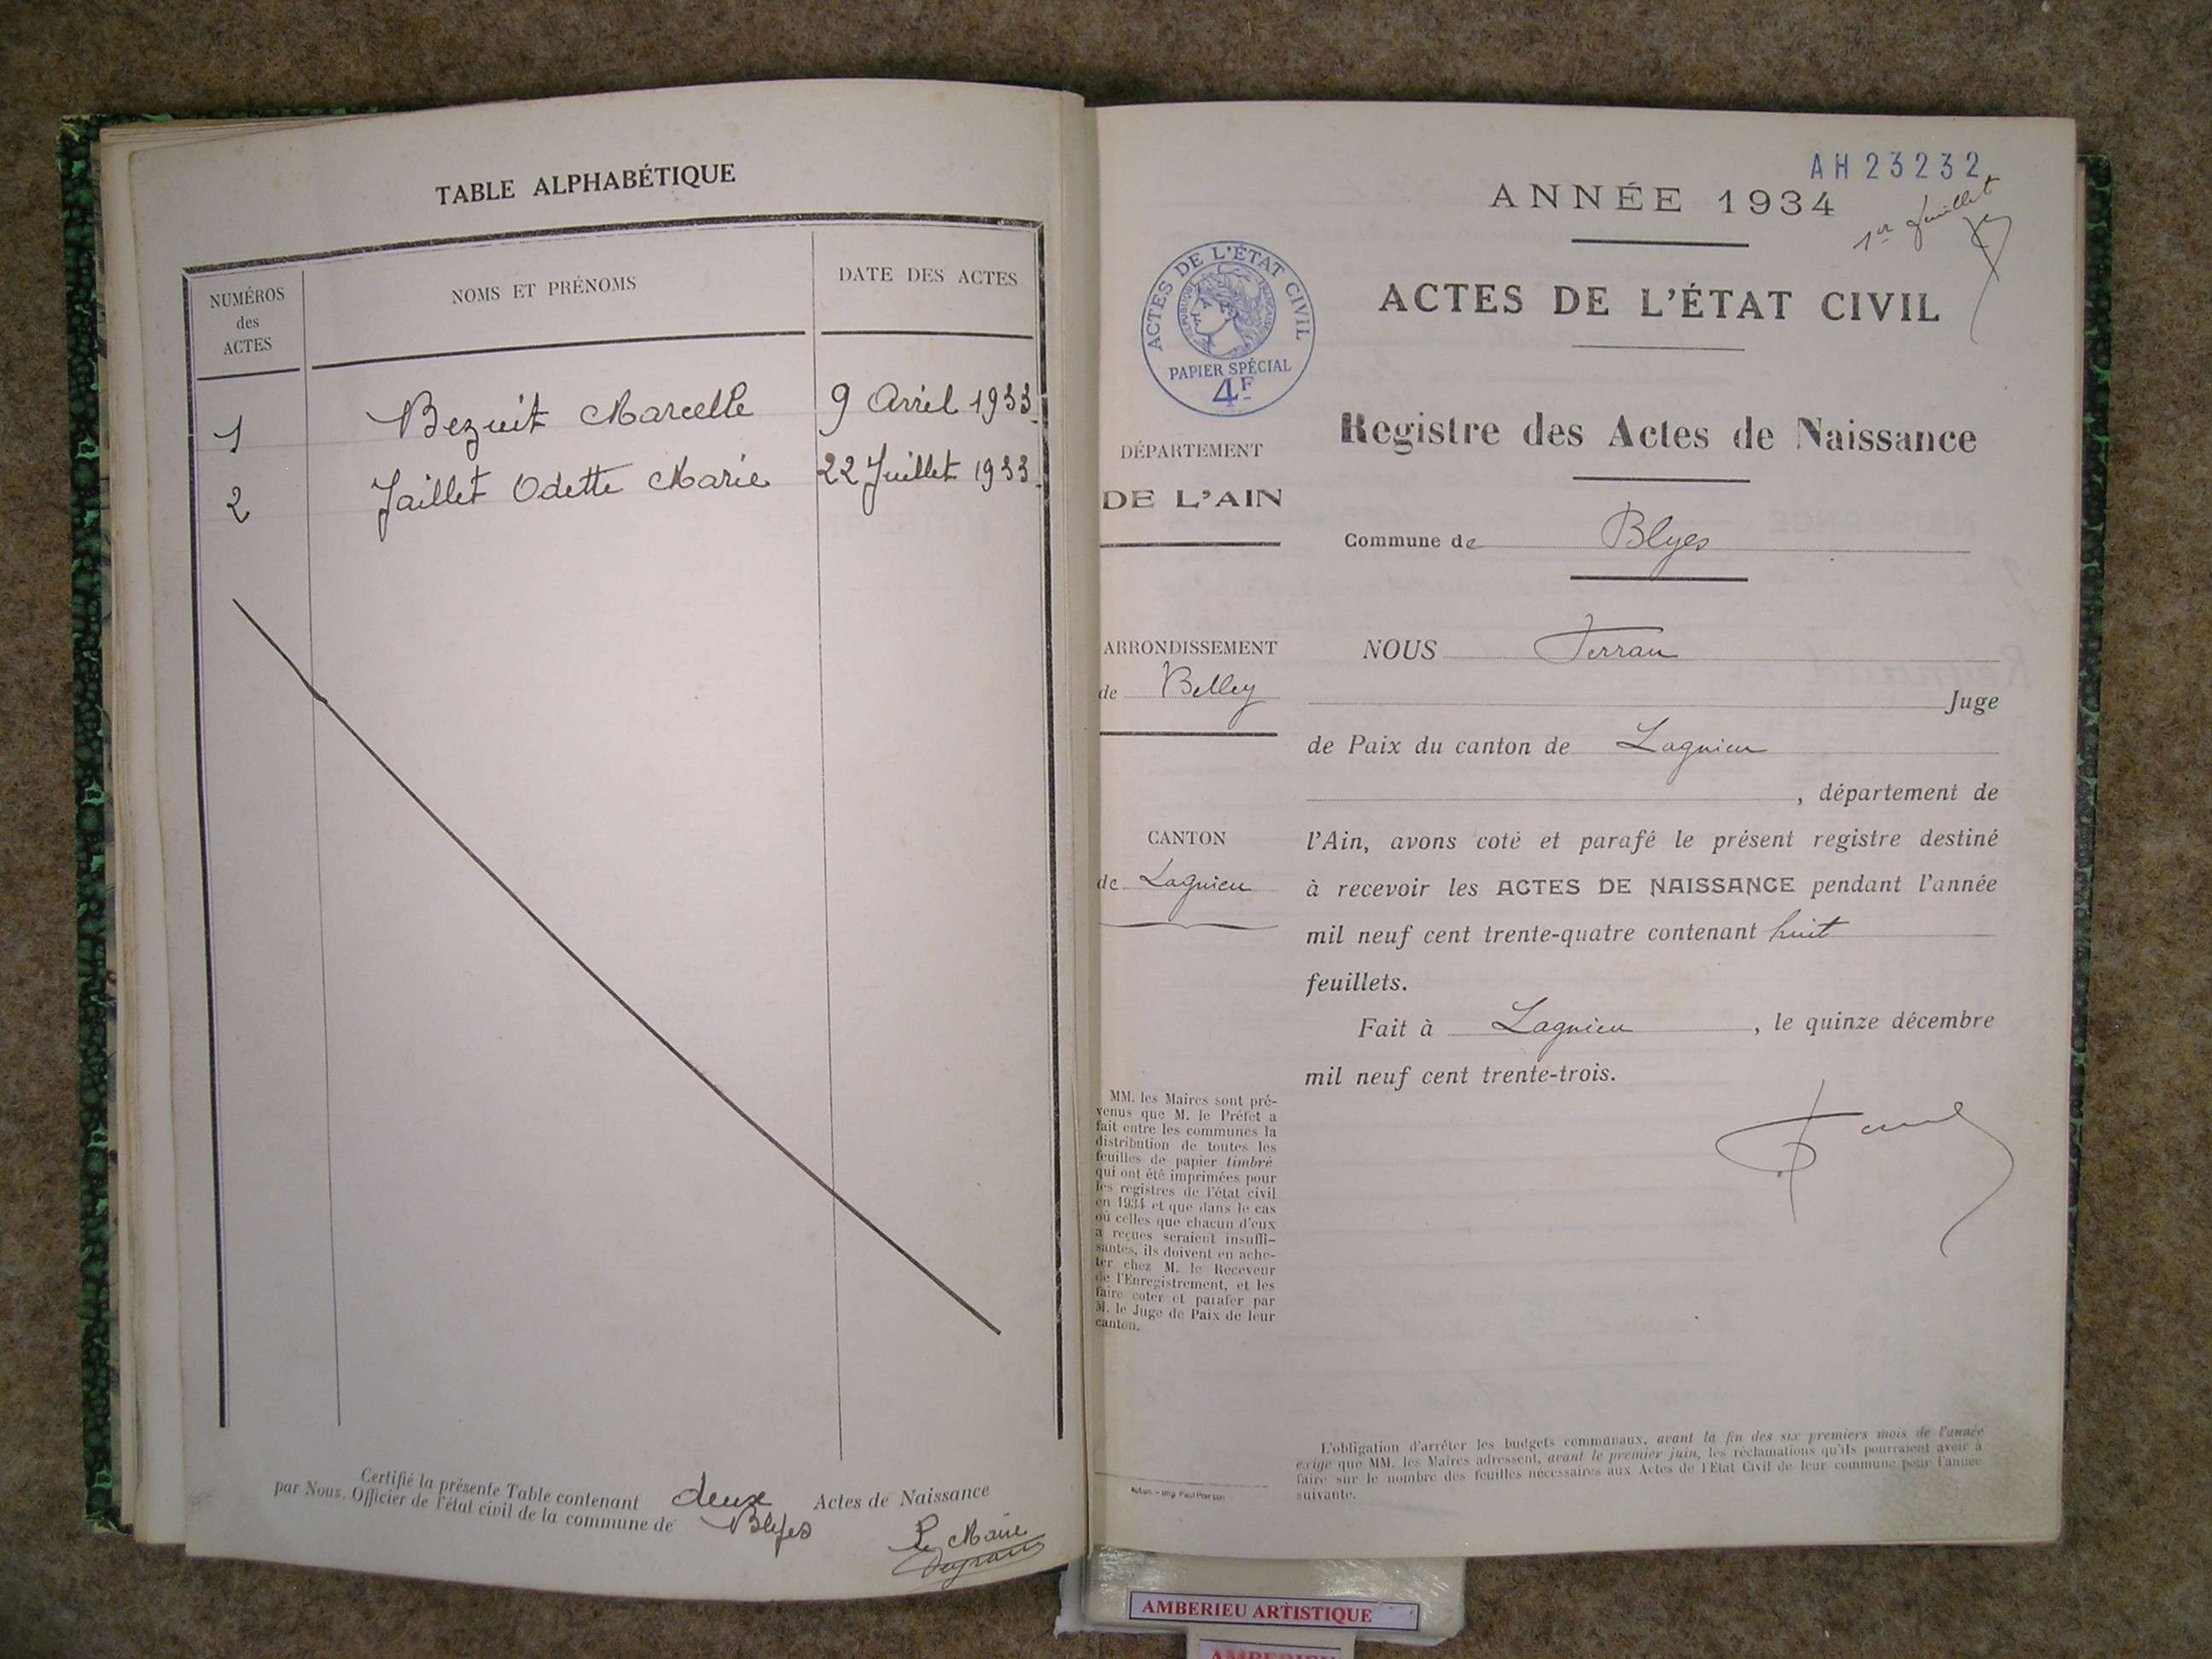 TABLE ALPHABÉTIQUE
NUMÉROS
des
ACTES
NOMS ET PRÉNOMS
DATE DES ACTES
1 Bezuit Marcelle 9 Avril 1933
2 Jaillet Odette Marie 22 Juillet 1933
Certifié la présente Table contenant deux Actes de Naissance
par Nous, Officier de l'état civil de la commune de Blyes
Le Maire
AH 23232
ANNÉE 1934
1er Juillet
ACTES DE L'ÉTAT CIVIL
ACTES DE L'ÉTAT CIVIL
RÉPUBLIQUE FRANÇAISE
PAPIER SPÉCIAL
4F
Registre des Actes de Naissance
DÉPARTEMENT
DE L'AIN
Commune de Blyes
ARRONDISSEMENT
de Belley
CANTON
de Lagnieu
NOUS Ferran
Juge
de Paix du canton de Lagnieu
, département de
l'Ain, avons coté et parafé le présent registre destiné
à recevoir les ACTES DE NAISSANCE pendant l'année
mil neuf cent trente-quatre contenant huit
feuillets.
Fait à Lagnieu, le quinze décembre
mil neuf cent trente-trois.
MM. les Maires sont pré-
venus que M. le Préfet a
fait entre les communes la
distribution de toutes les
feuilles de papier timbré
qui ont été imprimées pour
les registres de l'état civil
en 1934 et que dans le cas
où celles que chacun d'eux
a reçues seraient insuffi-
santes, ils doivent en ache-
ter chez M. le Receveur
de l'Enregistrement, et les
faire coter et parafer par
M. le Juge de Paix de leur
canton.
L'obligation d'arrêter les budgets communaux, avant la fin des six premiers mois de l'année
exige que MM. les Maires adressent, avant le premier juin, les réclamations qu'ils pourraient avoir à
faire sur le nombre des feuilles nécessaires aux Actes de l'Etat Civil de leur commune pour l'année
suivante.
AMBERIEU ARTISTIQUE
AMBERIEU